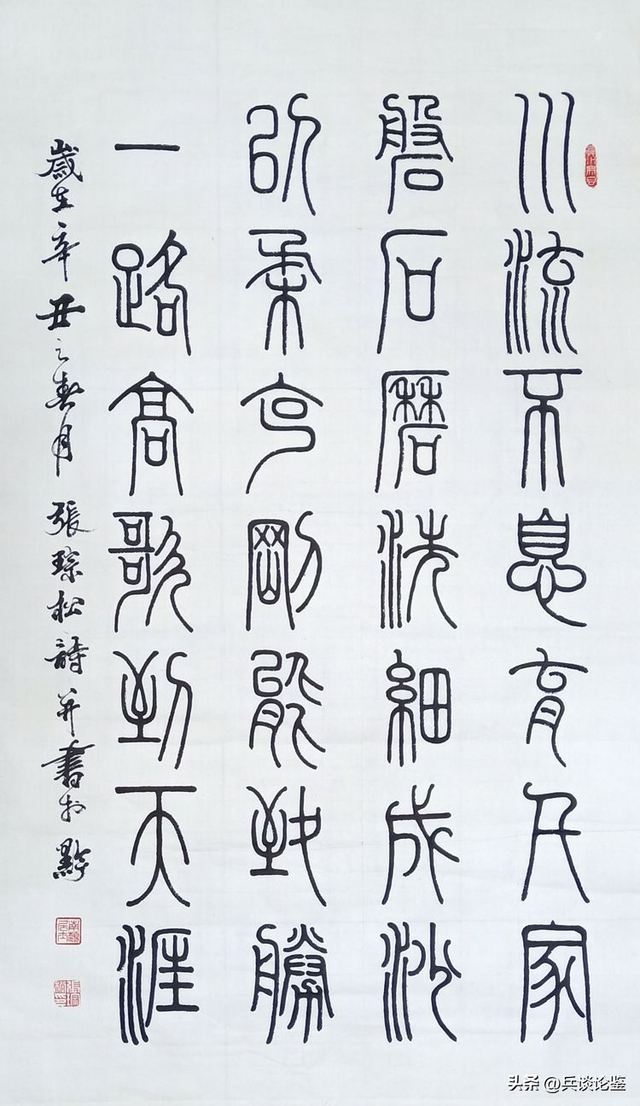 川流不息育万家
磐石磨洗細成沙
以柔克剛能致勝
一路高歌到天涯
歲在辛丑之春月 張琮松詩并書於黔
头条 @兵谈论鉴